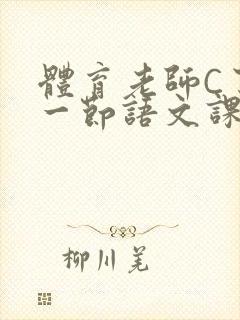 體育老師C了
一節語文課
柳川羌